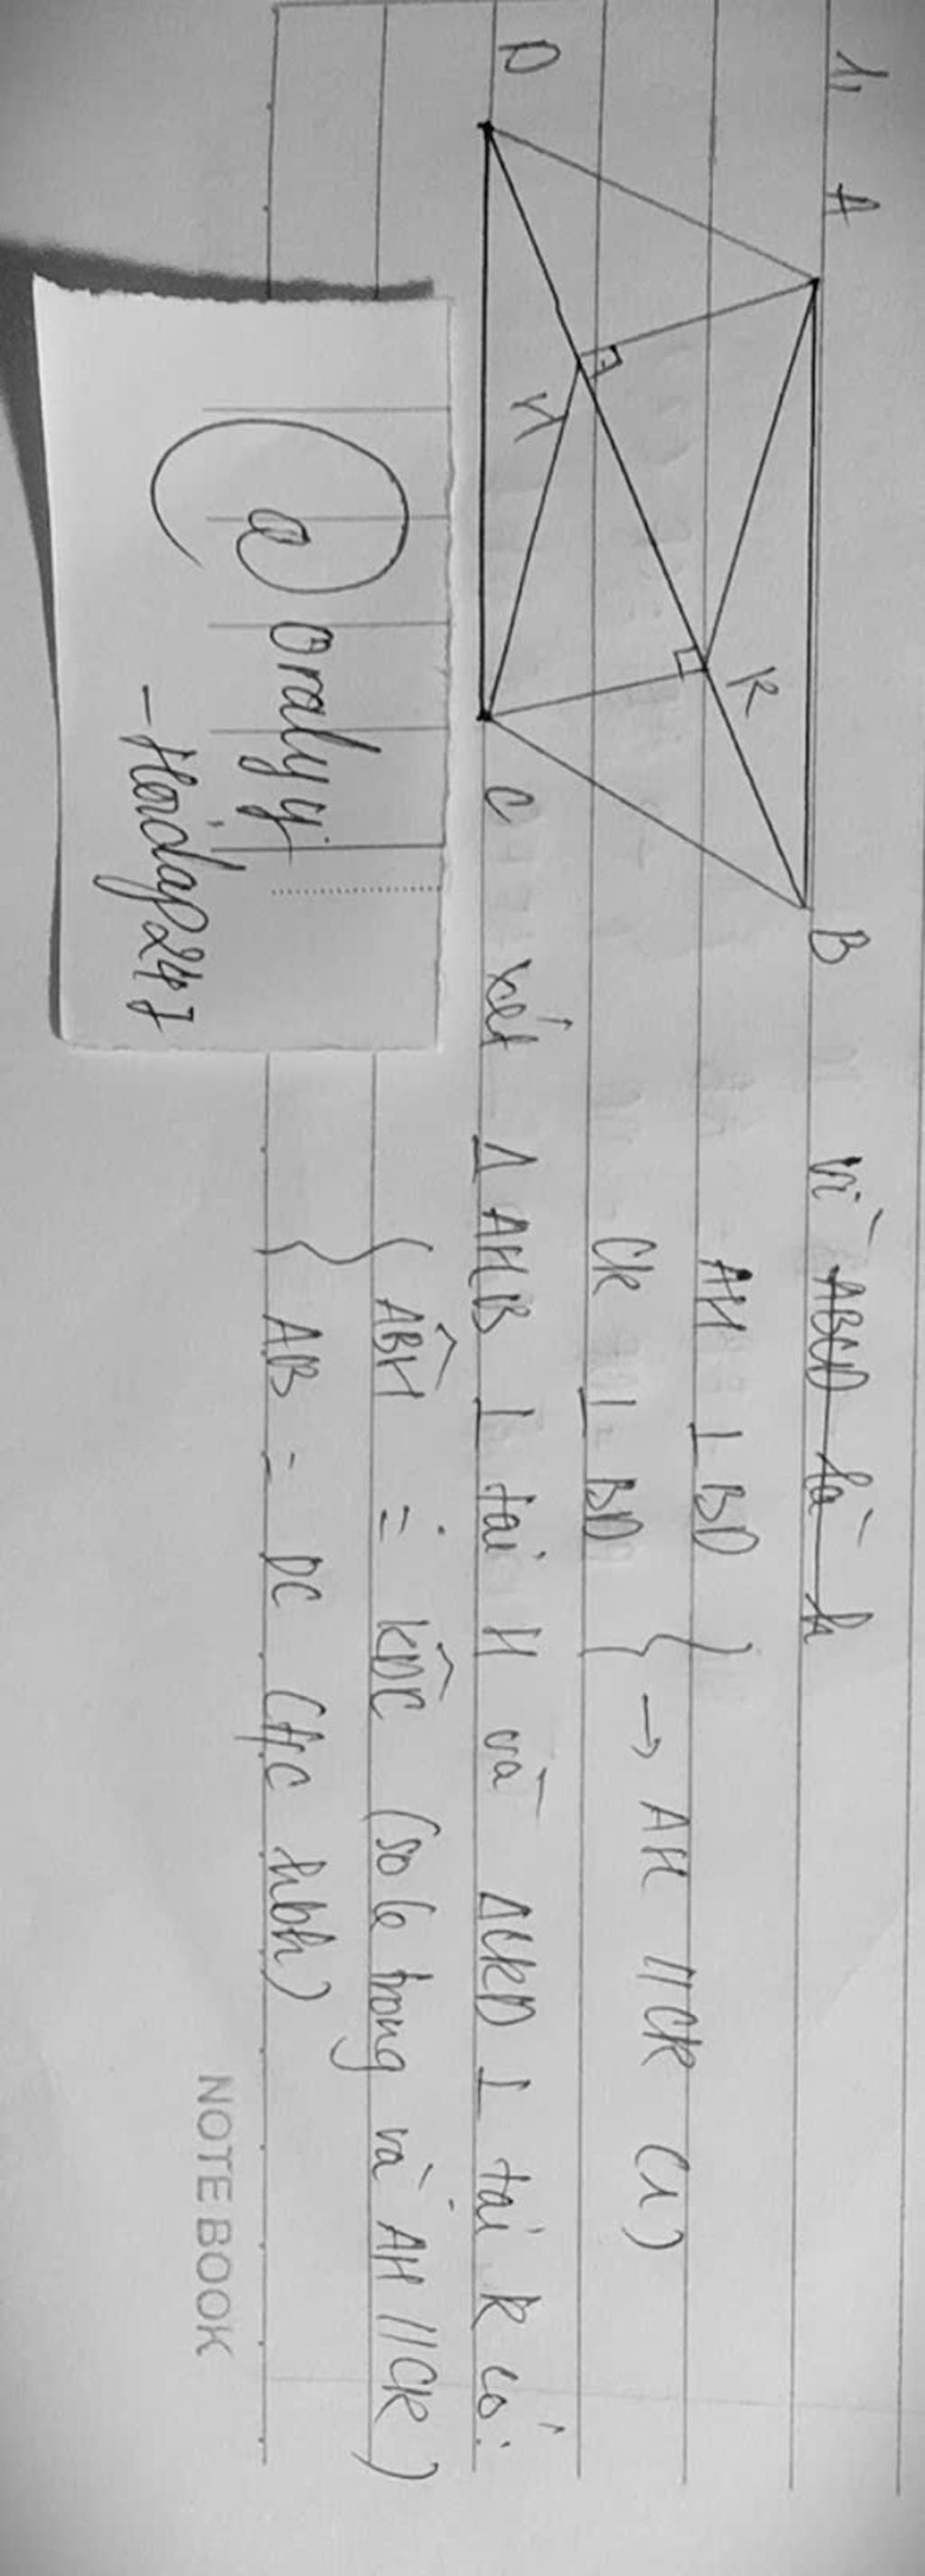 1,
A
B
D
C
H
K
Vì ABCD là h
AH ⊥ BD
CK ⊥ BD
} → AH // CK (1)
xét Δ AHB ⊥ tại H và ΔCKD ⊥ tại K có:
{ ABH = KDC (so le trong và AH // CK)
AB = DC (t/c hbh)
@ oralyy
- Hoidap247
NOTE BOOK